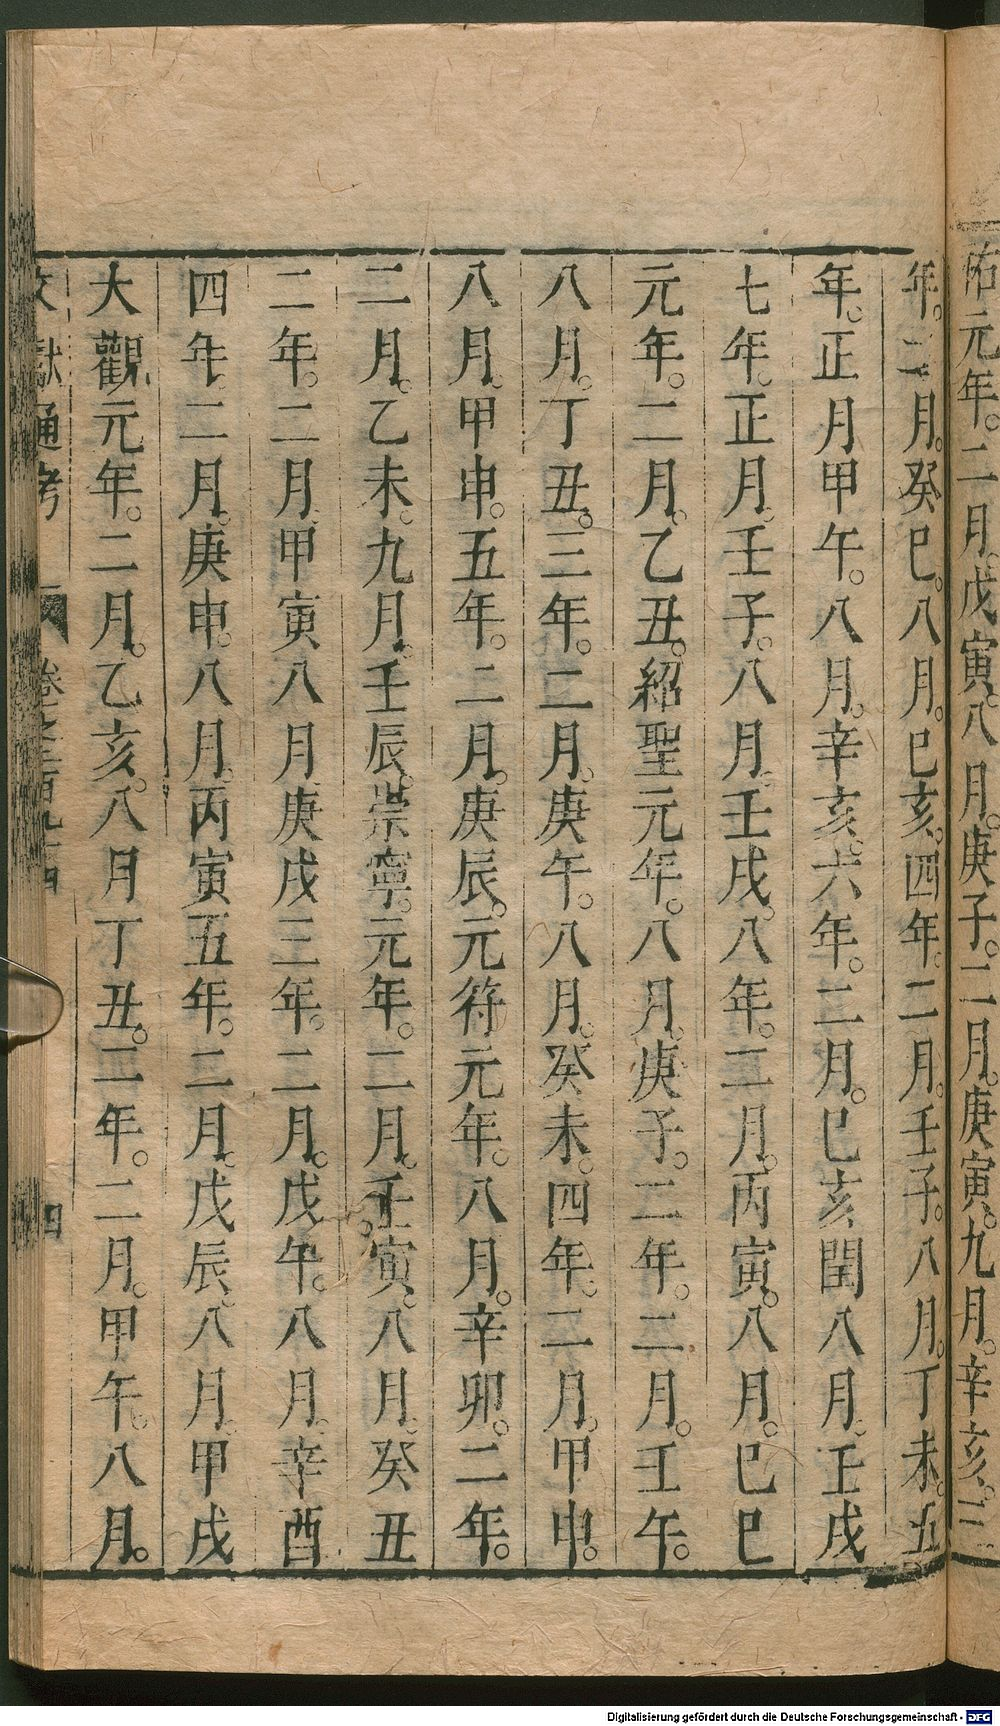 祐元年。二月。戊寅。八月。庚子。二年。二月。庚寅。九月。辛亥。三
年。二月。癸巳。八月。巳亥。四年。二月。壬子。八月。丁未。五
年。正月甲午。八月。辛亥。六年。二月。巳亥閏八月。壬戌
七年。正月。壬子。八月。壬戌。八年。二月。丙寅。八月。巳巳
元年。二月。乙丑。紹聖元年。八月。庚子。二年。二月。壬午。
八月。丁丑。三年。二月。庚午。八月。癸未。四年。二月。甲申。
八月。甲申。五年。二月。庚辰。元符元年。八月。辛卯。二年。
二月。乙未。九月。壬辰。崇寧。元年。二月。壬寅。八月。癸丑
二年。二月甲寅八月庚戌三年。二月。戊午。八月。辛酉
四年。二月。庚申。八月。丙寅五年。二月。戊辰。八月。甲戌
大觀元年。二月。乙亥。八月丁丑。二年。二月。甲午。八月。
文獻通考 卷之二百九十四 四
Digitalisierung gefördert durch die Deutsche Forschungsgemeinschaft - DFG